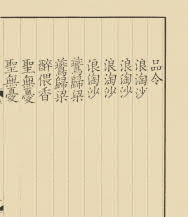 品令
浪淘沙
浪淘沙
浪淘沙
浪淘沙
鶯歸梁
鶯歸梁
醉偎香
聖無憂
聖無憂